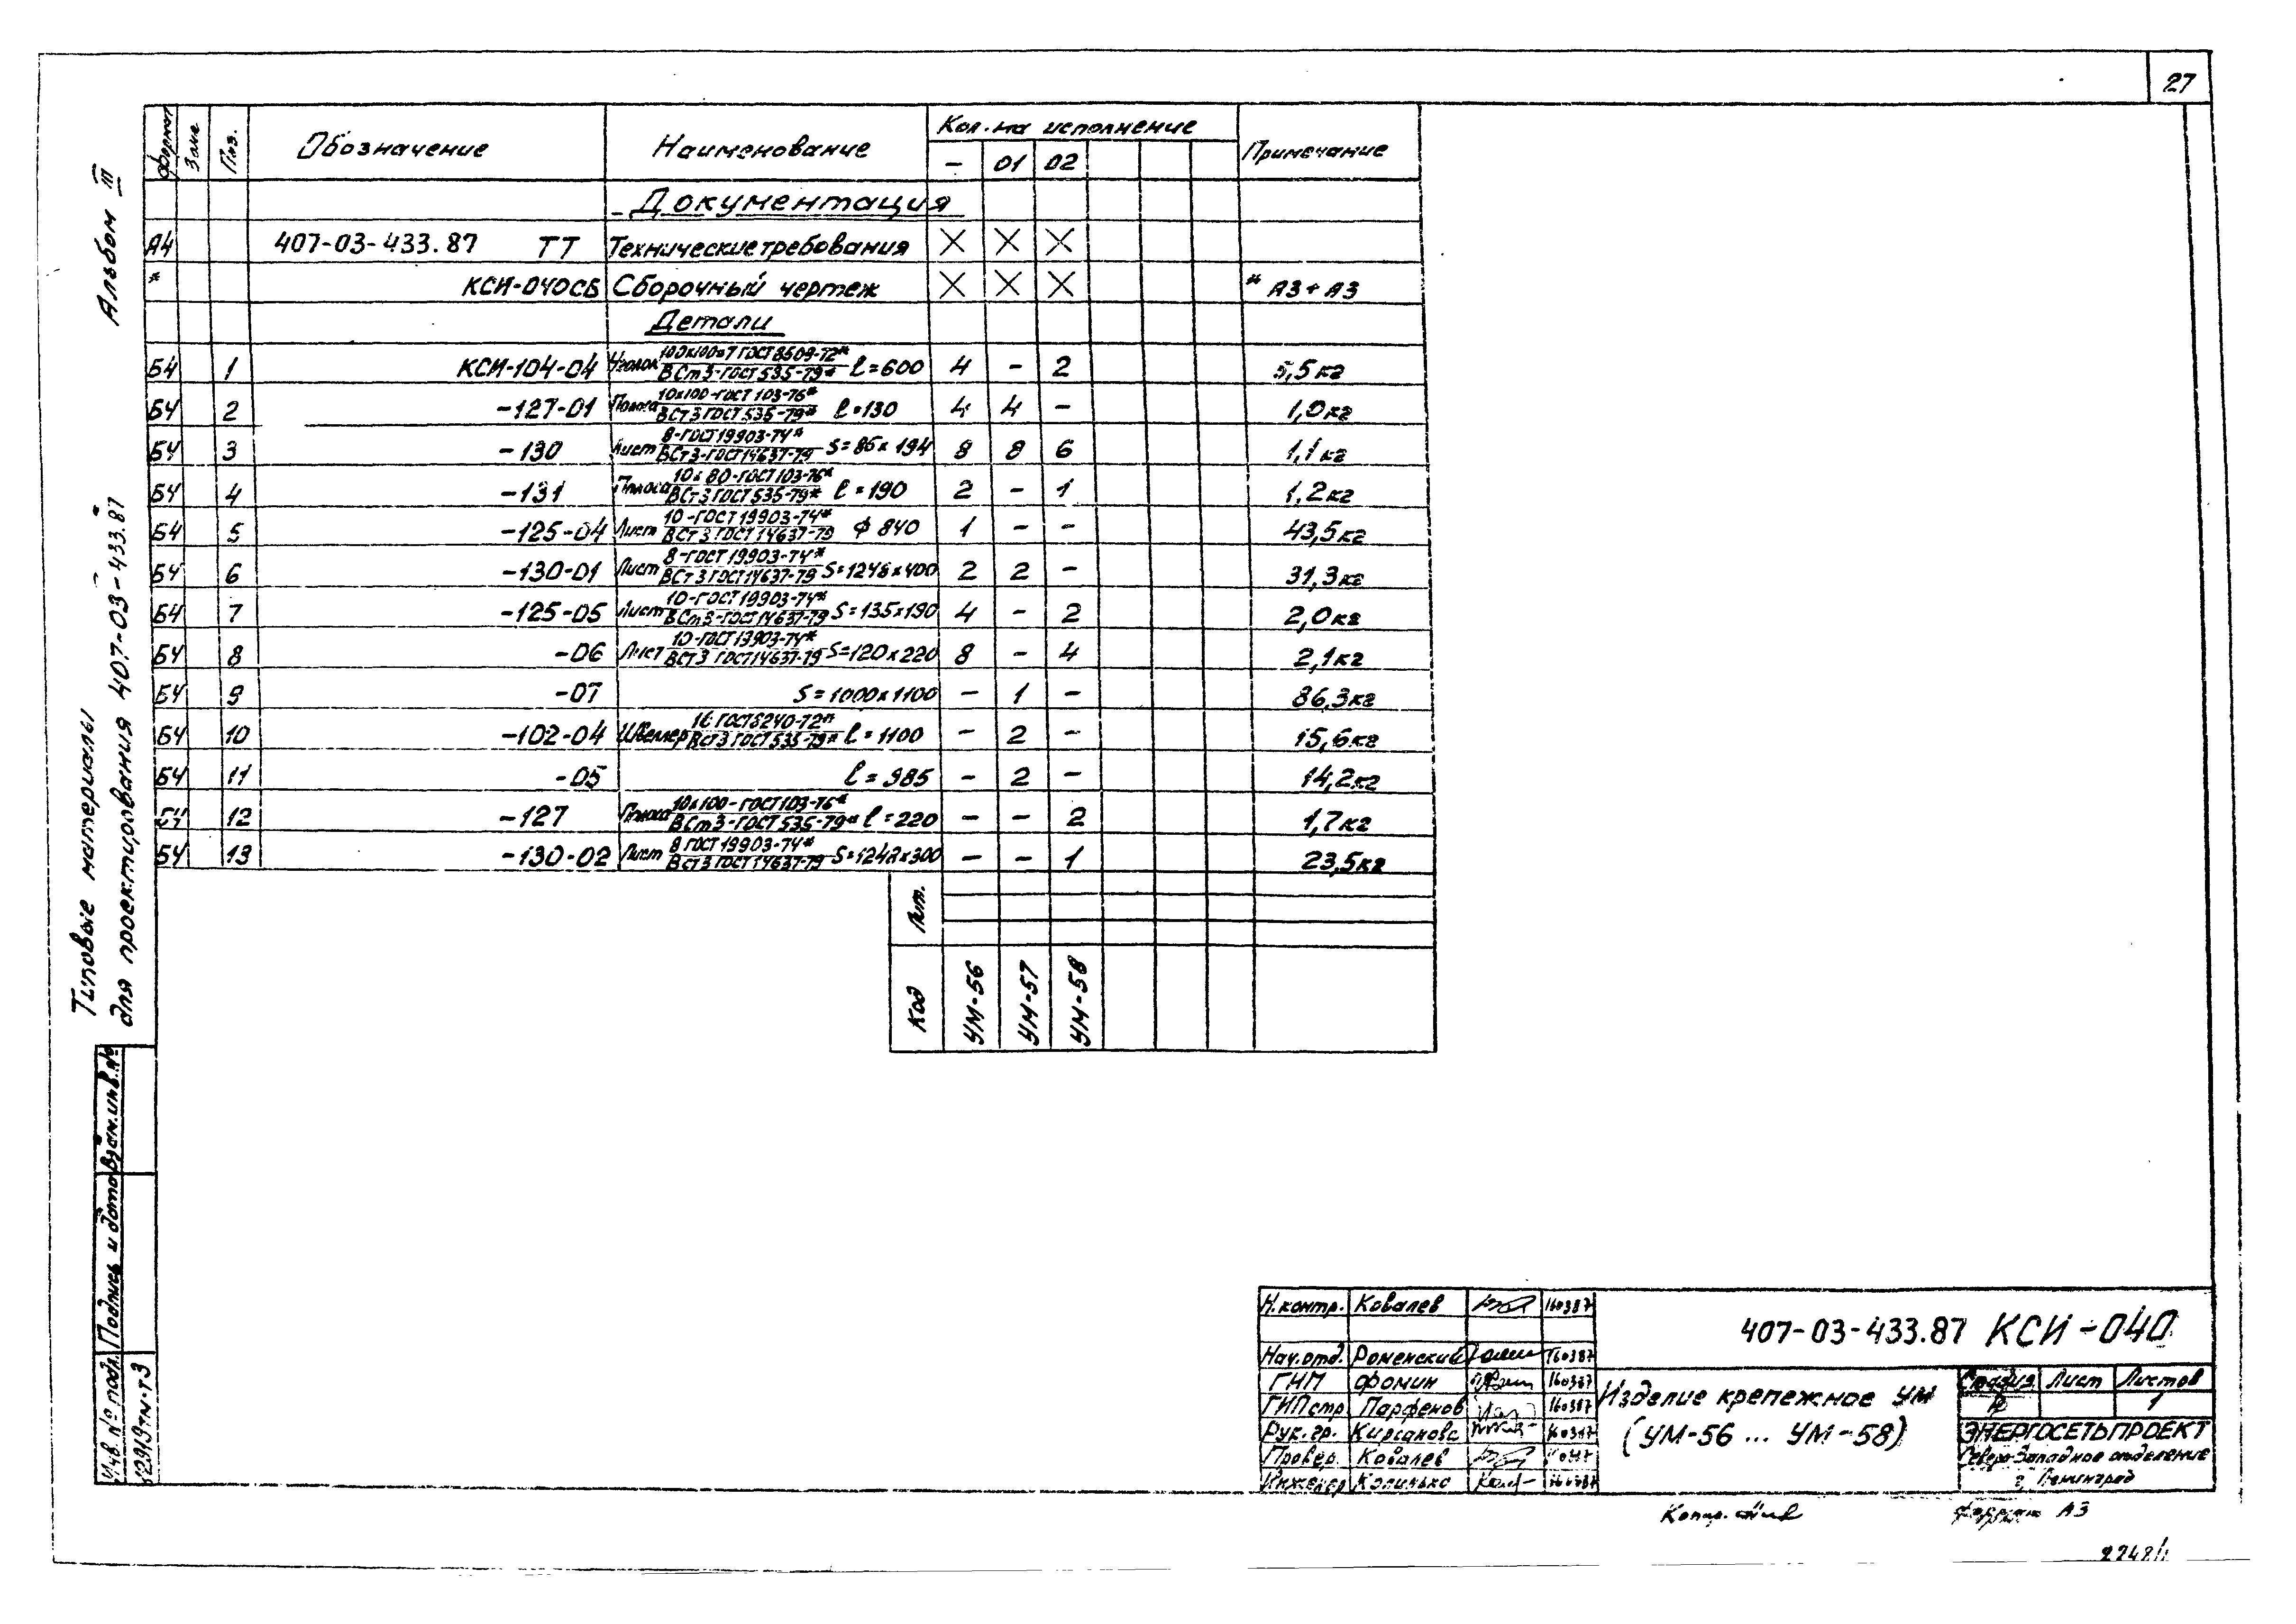 27
Альбом III
Типовые материалы
для проектирования 407-03-433.87
Формат Зона Поз. Обозначение Наименование Кол. на исполнение Примечание
- 01 02
Документация
А4 407-03-433.87 ТТ Технические требования X X X
* КСИ-040СБ Сборочный чертеж X X X * А3+А3
Детали
Б4 1 КСИ-104-04 Уголок 100х100х7 ГОСТ 8509-72* / ВСт3-ГОСТ 535-79* l=600 4 - 2 5,5кг
Б4 2 -127-01 Полоса 10х100-ГОСТ 103-76* / ВСт3 ГОСТ 535-79* l=130 4 4 - 1,0кг
Б4 3 -130 Лист 8-ГОСТ 19903-74* / ВСт3-ГОСТ 14637-79 S=85х194 8 8 6 1,1кг
Б4 4 -131 Полоса 10х80-ГОСТ 103-76* / ВСт3 ГОСТ 535-79* l=190 2 - 1 1,2кг
Б4 5 -125-04 Лист 10-ГОСТ 19903-74* / ВСт3 ГОСТ 14637-79 ф 840 1 - - 43,5кг
Б4 6 -130-01 Лист 8-ГОСТ 19903-74* / ВСт3 ГОСТ 14637-79 S=1246х400 2 2 - 31,3кг
Б4 7 -125-05 Лист 10-ГОСТ 19903-74* / ВСт3-ГОСТ 14637-79 S=135х190 4 - 2 2,0кг
Б4 8 -06 Лист 10-ГОСТ 19903-74* / ВСт3 ГОСТ 14637-79 S=120х220 8 - 4 2,1кг
Б4 9 -07 S=1000х1100 - 1 - 86,3кг
Б4 10 -102-04 Швеллер 16 ГОСТ 8240-72* / ВСт3 ГОСТ 535-79* l=1100 - 2 - 15,6кг
Б4 11 -05 l=985 - 2 - 14,2кг
Б4 12 -127 Полоса 10х100-ГОСТ 103-76* / ВСт3-ГОСТ 535-79* l=220 - - 2 1,7кг
Б4 13 -130-02 Лист 8 ГОСТ 19903-74* / ВСт3 ГОСТ 14637-79 S=1242х300 - - 1 23,5кг
Лит.
Код УМ-56 УМ-57 УМ-58
Взам.инв.№
Подпись и дата
Инв.№ подл. 12919тм-т3
Н.контр. Ковалев 160387
407-03-433.87 КСИ-040
Нач.отд. Роменский 160387
ГИП Фомин 160387
ГИП стр. Парфенов 160387
Рук.гр. Кирсанова 160387
Провер. Ковалев
Инженер
Изделие крепежное УМ
(УМ-56 ... УМ-58)
Стадия Лист Листов
Р 1
ЭНЕРГОСЕТЬПРОЕКТ
Северо-Западное отделение
г. Ленинград
Копир.
Формат А3